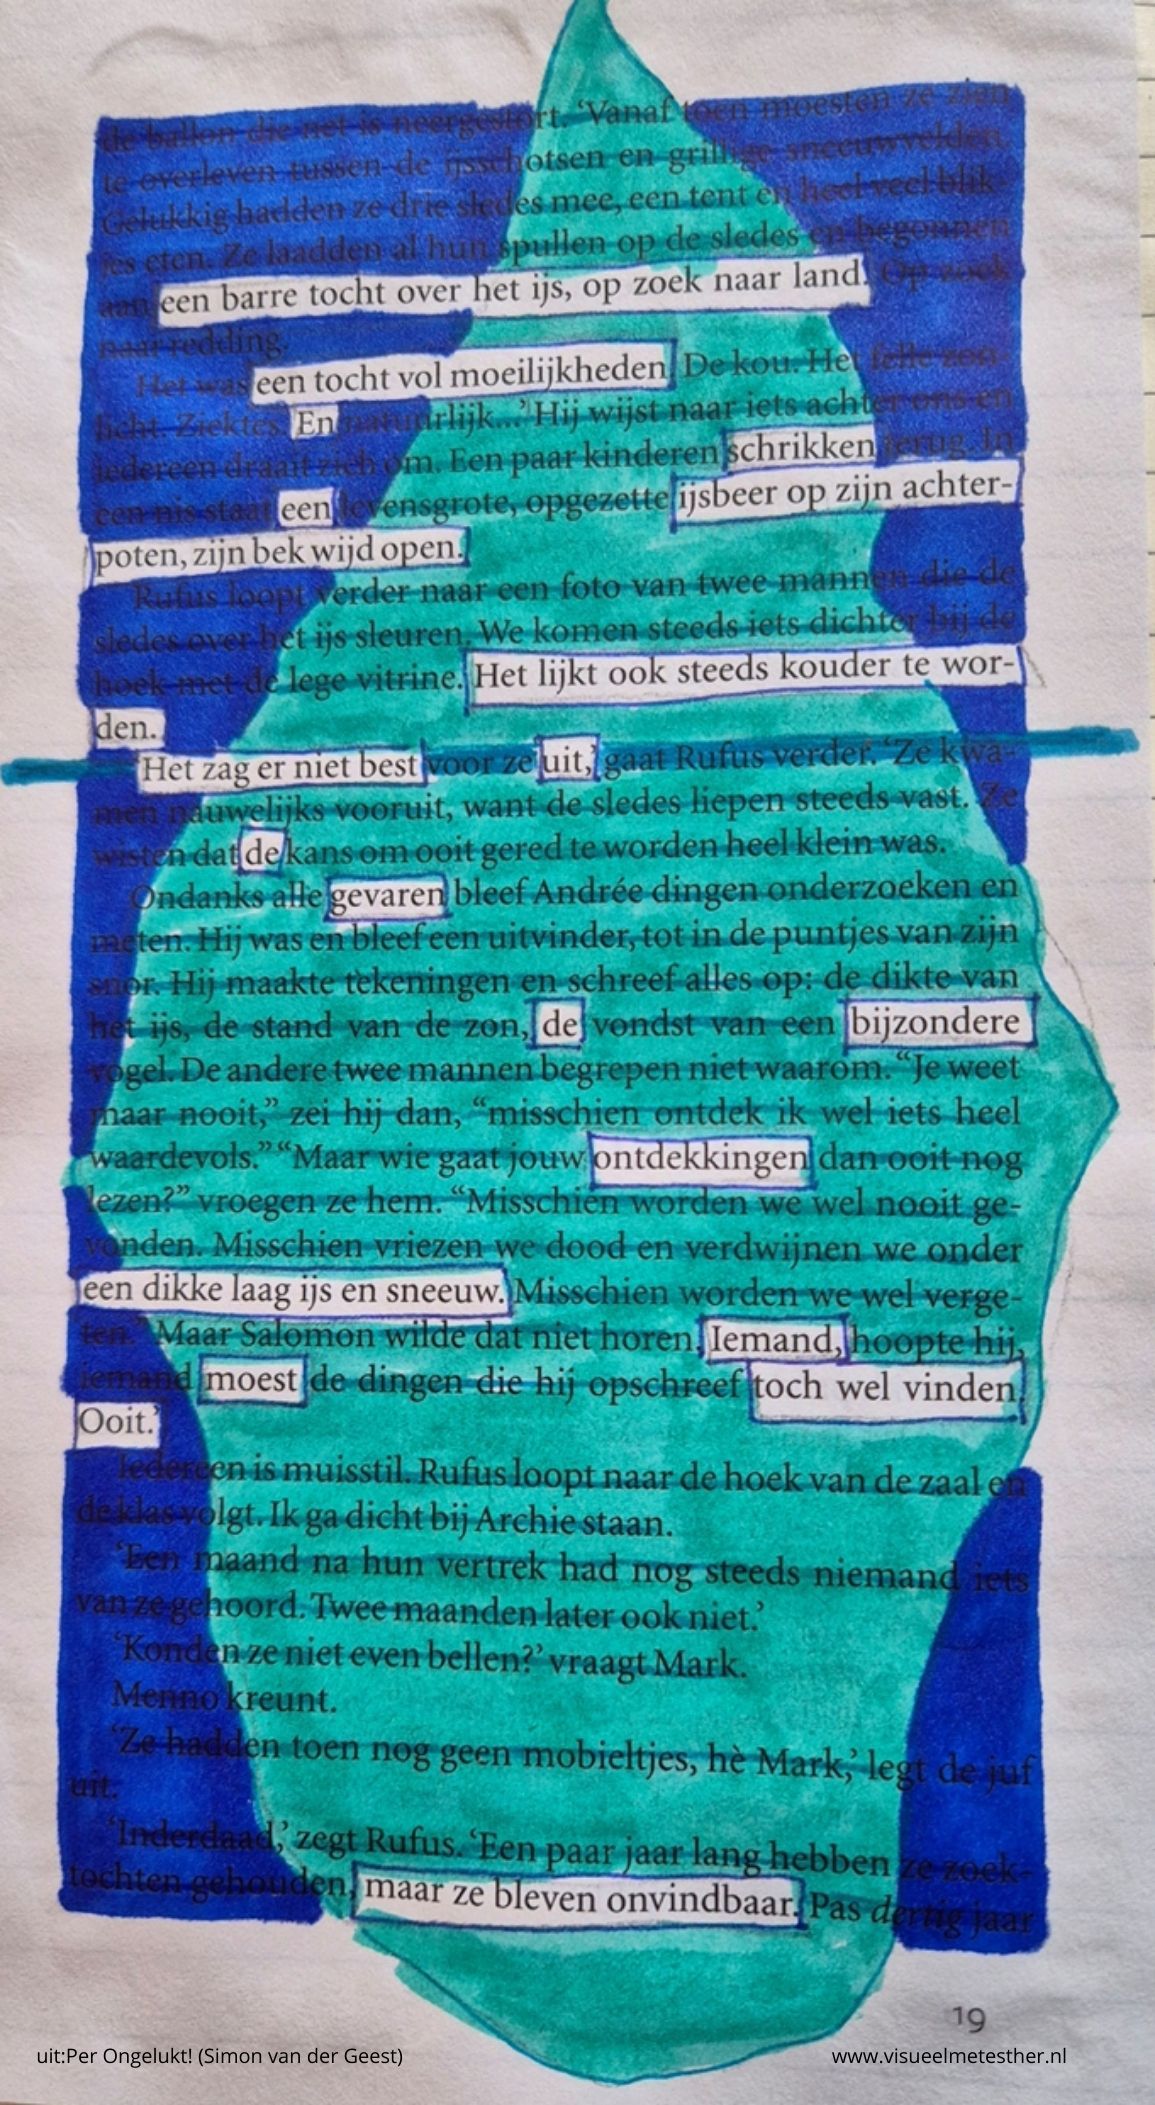 de ballon die net is neergestort. ‘Vanaf toen moesten ze zien
te overleven tussen de ijsschotsen en grillige sneeuwvelden.
Gelukkig hadden ze drie sledes mee, een tent en heel veel blik-
jes eten. Ze laadden al hun spullen op de sledes en begonnen
aan een barre tocht over het ijs, op zoek naar land. Op zoek
naar redding.
Het was een tocht vol moeilijkheden. De kou. Het felle zon-
licht. Ziektes. En natuurlijk...’ Hij wijst naar iets achter ons en
iedereen draait zich om. Een paar kinderen schrikken terug. In
een nis staat een levensgrote, opgezette ijsbeer op zijn achter-
poten, zijn bek wijd open.
Rufus loopt verder naar een foto van twee mannen die de
sledes over het ijs sleuren. We komen steeds iets dichter bij de
hoek met de lege vitrine. Het lijkt ook steeds kouder te wor-
den.
‘Het zag er niet best voor ze uit,’ gaat Rufus verder. ‘Ze kwa-
men nauwelijks vooruit, want de sledes liepen steeds vast. Ze
wisten dat de kans om ooit gered te worden heel klein was.
Ondanks alle gevaren bleef Andrée dingen onderzoeken en
meten. Hij was en bleef een uitvinder, tot in de puntjes van zijn
snor. Hij maakte tekeningen en schreef alles op: de dikte van
het ijs, de stand van de zon, de vondst van een bijzondere
vogel. De andere twee mannen begrepen niet waarom. “Je weet
maar nooit,” zei hij dan, “misschien ontdek ik wel iets heel
waardevols.” “Maar wie gaat jouw ontdekkingen dan ooit nog
lezen?” vroegen ze hem. “Misschien worden we wel nooit ge-
vonden. Misschien vriezen we dood en verdwijnen we onder
een dikke laag ijs en sneeuw. Misschien worden we wel verge-
ten.” Maar Salomon wilde dat niet horen. Iemand, hoopte hij,
iemand moest de dingen die hij opschreef toch wel vinden.
Ooit.’
Iedereen is muisstil. Rufus loopt naar de hoek van de zaal en
de klas volgt. Ik ga dicht bij Archie staan.
‘Een maand na hun vertrek had nog steeds niemand iets
van ze gehoord. Twee maanden later ook niet.’
‘Konden ze niet even bellen?’ vraagt Mark.
Menno kreunt.
‘Ze hadden toen nog geen mobieltjes, hè Mark,’ legt de juf
uit.
‘Inderdaad,’ zegt Rufus. ‘Een paar jaar lang hebben ze zoek-
tochten gehouden, maar ze bleven onvindbaar. Pas dertig jaar
19
uit:Per Ongelukt! (Simon van der Geest)
www.visueelmetesther.nl